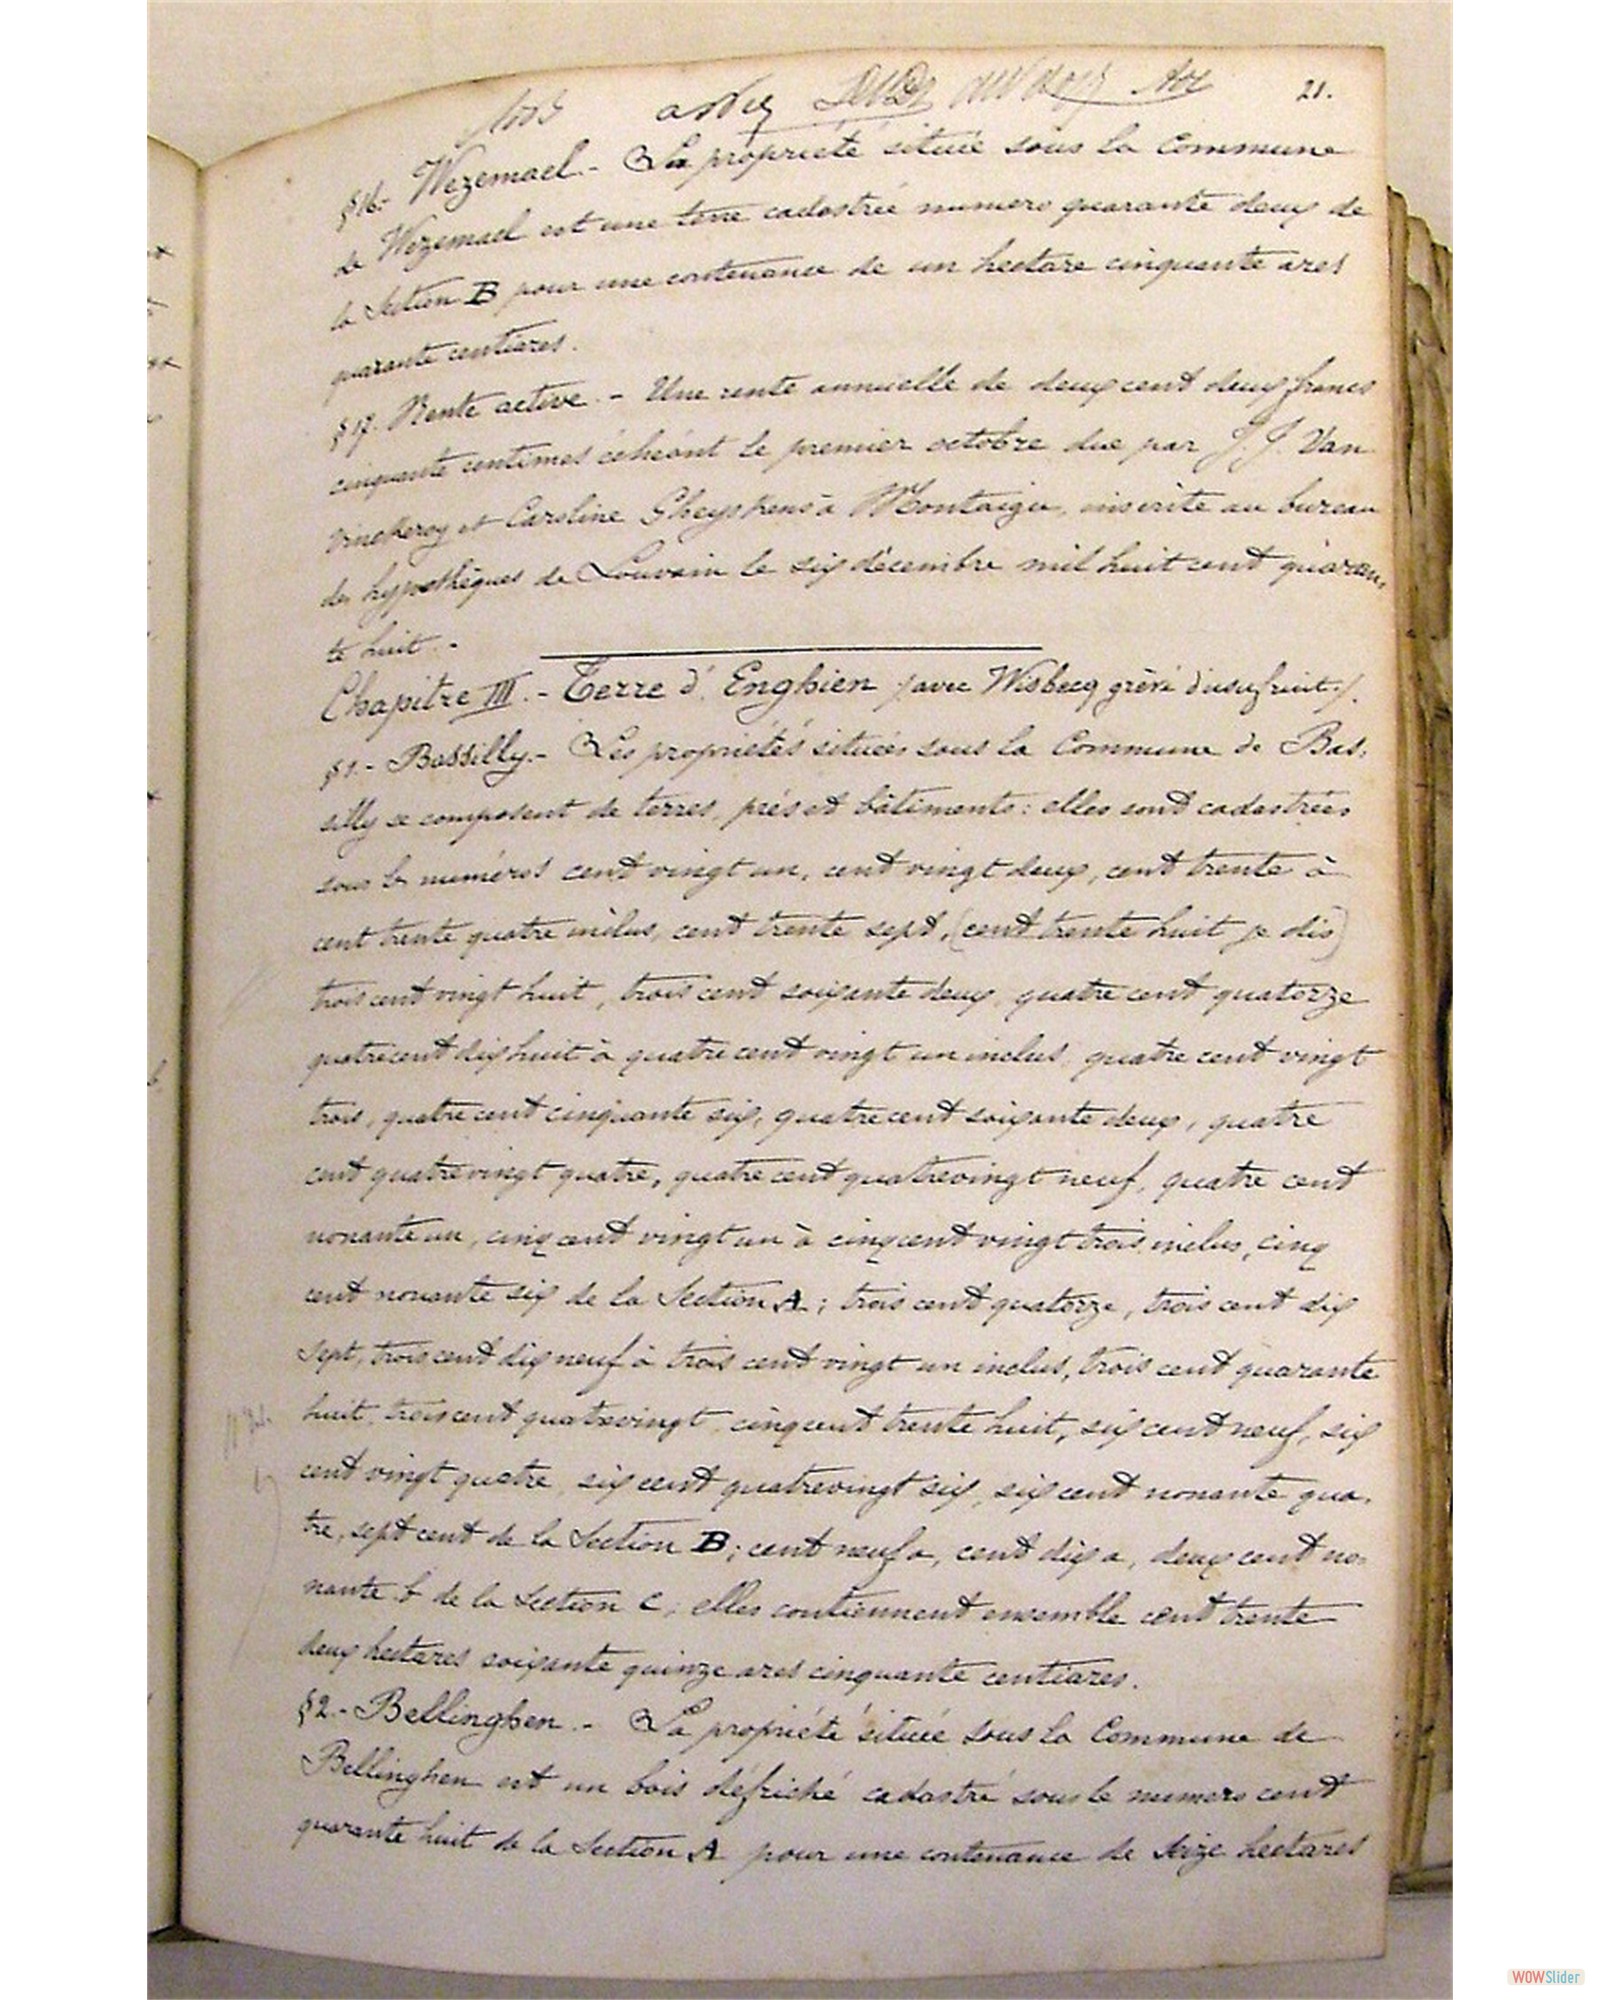 21.
§16.- Wezemael.- La propriété située sous la Commune
de Wezemael est une terre cadastrée numero quarante deux de
la Section B pour une contenance de un hectare cinquante ares
quarante centiares.
§17. Rente active.- Une rente annuelle de deux cent deux francs
cinquante centimes échéant le premier octobre due par J. J. Van
Vinckeroy et Caroline Gheyskens à Montaigu, inscrite au bureau
des hypothèques de Louvain le six décembre mil huit cent quaran-
te huit.-
Chapitre III.- Terre d'Enghien (avec Wisbecq grévé d'usufruit.)
§1.- Bassilly.- Les propriétés situées sous la Commune de Bas-
silly se composent de terres, prés et bâtiments: elles sont cadastrées
sous les numéros cent vingt un, cent vingt deux, cent trente à
cent trente quatre inclus, cent trente sept, (cent trente huit je dis)
trois cent vingt huit, trois cent soixante deux, quatre cent quatorze
quatre cent dix huit à quatre cent vingt un inclus, quatre cent vingt
trois, quatre cent cinquante six, quatre cent soixante deux, quatre
cent quatrevingt quatre, quatre cent quatrevingt neuf, quatre cent
nonante un, cinq cent vingt un à cinq cent vingt trois inclus, cinq
cent nonante six de la Section A; trois cent quatorze, trois cent dix
sept, trois cent dix neuf à trois cent vingt un inclus, trois cent quarante
huit, trois cent quatrevingt, cinq cent trente huit, six cent neuf, six
cent vingt quatre, six cent quatrevingt six, six cent nonante qua-
tre, sept cent de la Section B; cent neuf a, cent dix a, deux cent no-
nante b de la Section C; elles contiennent ensemble cent trente
deux hectares soixante quinze ares cinquante centiares.
§2.- Bellinghen.- La propriété située sous la Commune de
Bellinghen est un bois défriché cadastré sous le numero cent
quarante huit de la Section A pour une contenance de seize hectares
WOWSlider